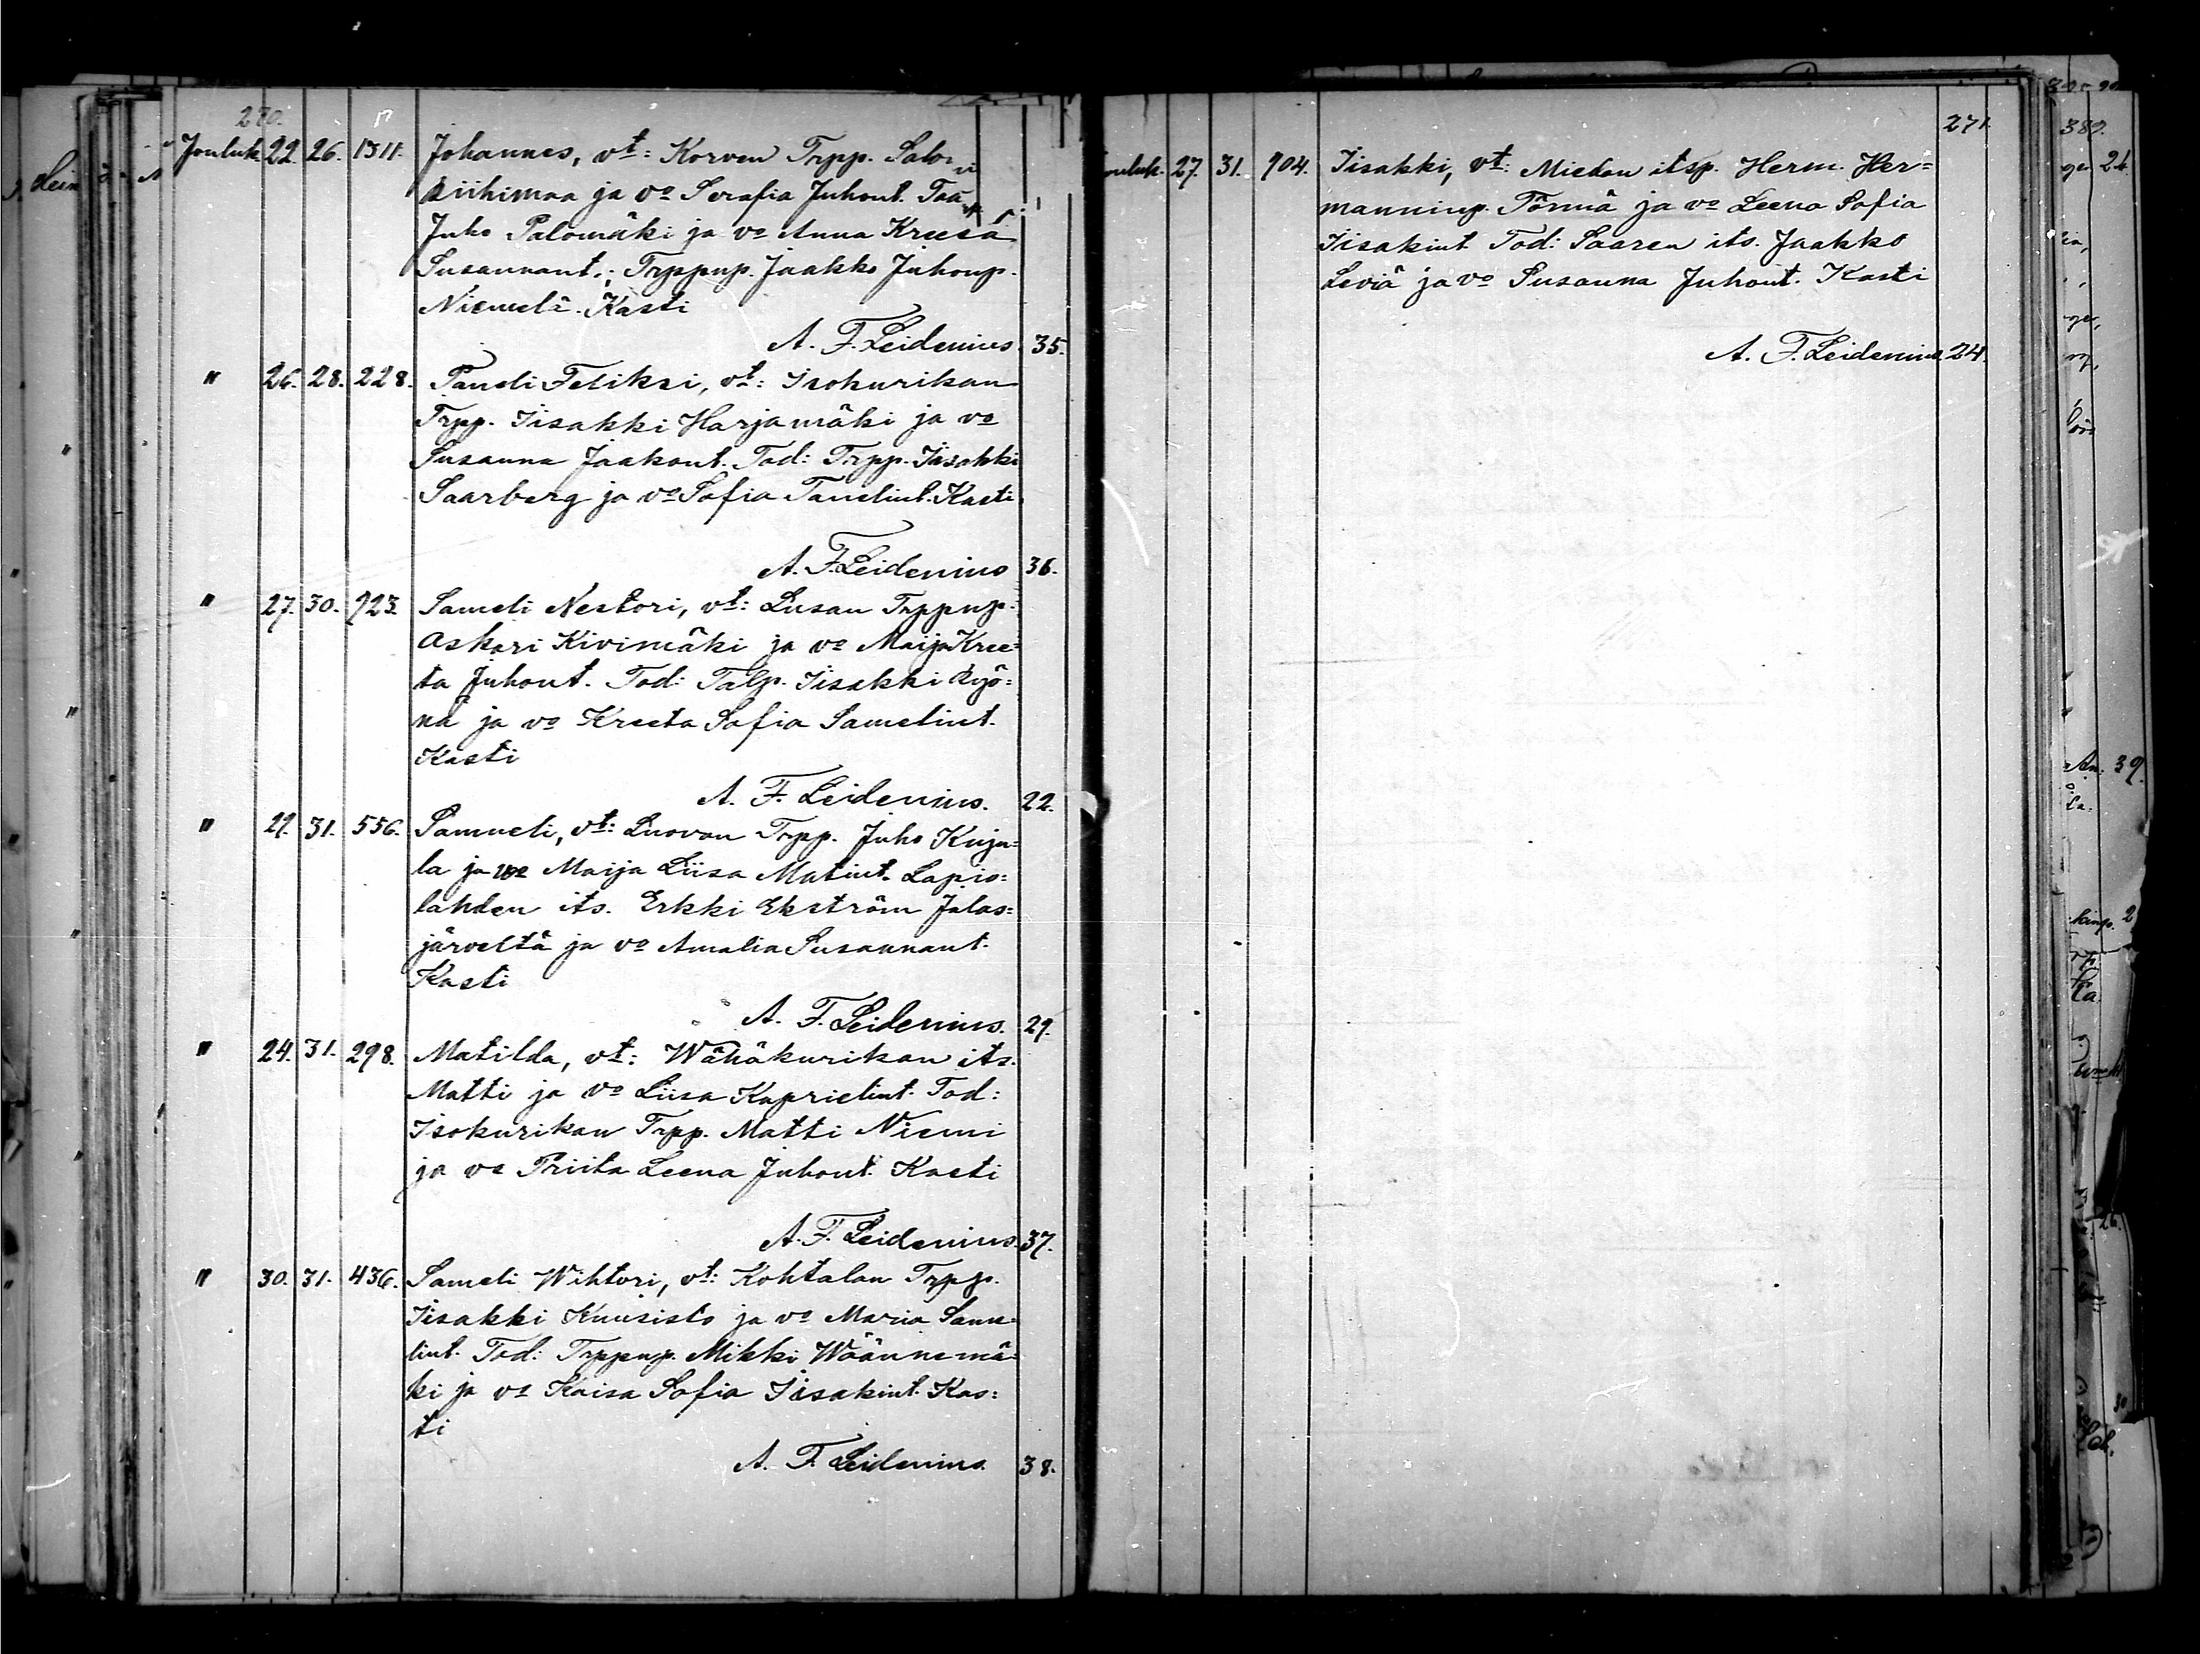 270.
Jouluk. 22. 26. 1311. Johannes, vt: Korven Trpp. Salo-
Riihimaa ja vo Serafia Juhont.
Juho Palomäki ja vo Anna Kreeta
Susannant.; Trppnp. Jaakko Juhonp.
Niemelä. Kasti
A. F. Leidenius. 35.
" 26. 28. 228. Taneli Feliksi, vt: Isokurikan
Trpp. Iisakki Harjamäki ja vo
Susanna Jaakont. Tod: Trpp. Iisakki
Saarberg ja vo Sofia Tanelint. Kasti
A. F. Leidenius 36.
" 27. 30. 923. Sameli Nestori, vt: Lusan Trppnp.
Oskari Kivimäki ja vo Maija Kree=
ta Juhont. Tod: Talp. Iisakki Ryö=
nä ja vo Kreeta Sofia Samelint.
Kasti
A. F. Leidenius. 22.
" 29. 31. 556. Samueli, vt: Luovan Trpp. Juho Kuja=
la ja vo Maija Liisa Matint. Lapio=
lahden its. Erkki Ekström Jalas=
järveltä ja vo Amalia Susannant.
Kasti
A. F. Leidenius. 29.
" 24. 31. 298. Matilda, vt: Wähäkurikan its.
Matti ja vo Liisa Kaprielint. Tod:
Isokurikan Trpp. Matti Niemi
ja vo Priita Leena Juhont. Kasti
A. F. Leidenius. 37.
" 30. 31. 436. Sameli Wihtori, vt: Kohtalan Trpp.
Iisakki Kuusisto ja vo Maria Same=
lint. Tod: Trppnp. Mikki Wäännemä=
ki ja vo Kaisa Sofia Iisakint. Kas=
ti
A. F. Leidenius. 38.
271.
27. 31. 904. Iisakki, vt: Miedon itsp. Herm. Her=
manninp. Törmä ja vo Leena Sofia
Iisakint. Tod: Saaren its. Jaakko
Leviä ja vo Susanna Juhont. Kasti
A. F. Leidenius. 24.